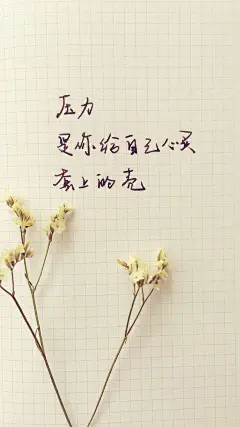 压力
是你给自己心灵
套上的壳